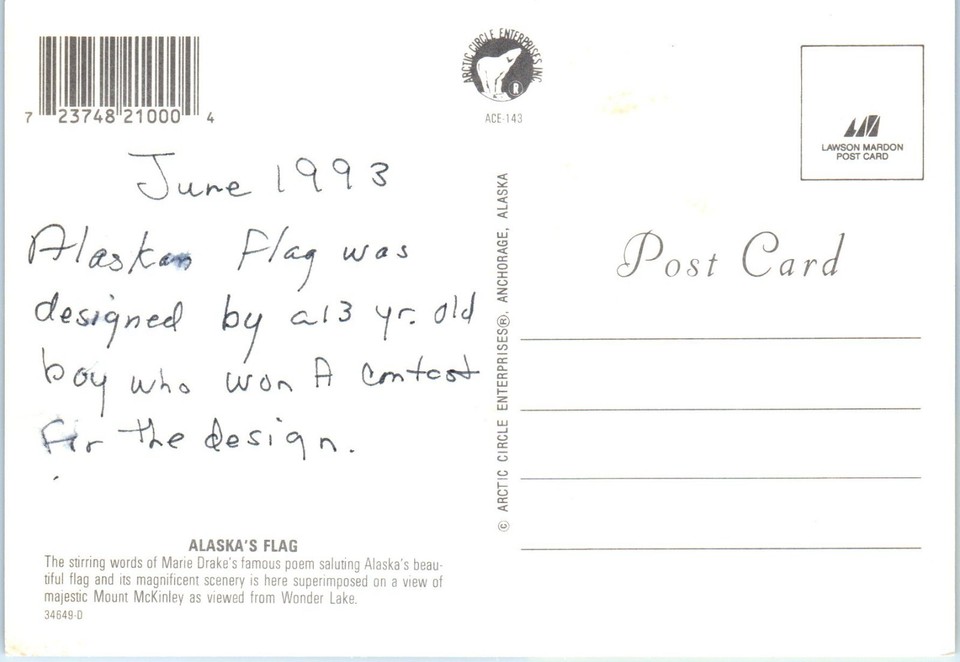 7 23748 21000 4
ARCTIC CIRCLE ENTERPRISES INC
R
ACE-143
LAWSON MARDON
POST CARD
June 1993
Alaskan Flag was
designed by a 13 yr. old
boy who won A contest
for the design.
Post Card
© ARCTIC CIRCLE ENTERPRISES®, ANCHORAGE, ALASKA
ALASKA'S FLAG
The stirring words of Marie Drake's famous poem saluting Alaska's beau-
tiful flag and its magnificent scenery is here superimposed on a view of
majestic Mount McKinley as viewed from Wonder Lake.
34649-D